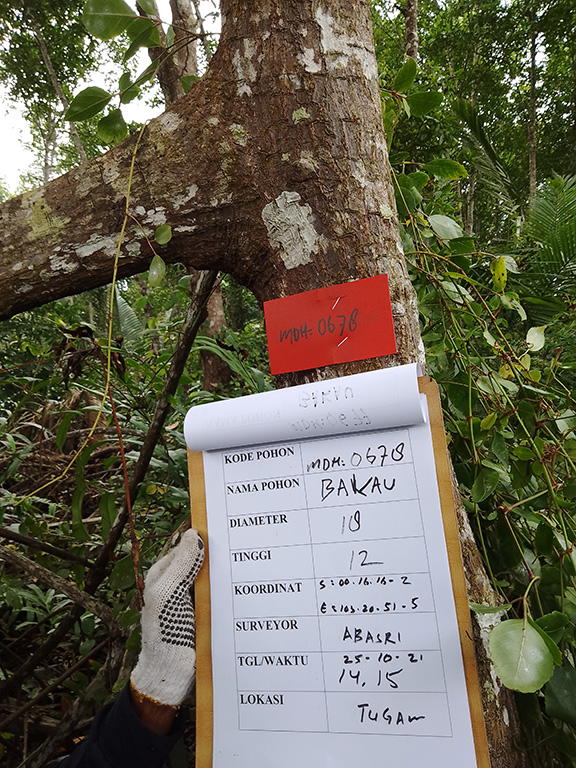 MDH: 0678
KODE POHON MDH: 0678
NAMA POHON BAKAU
DIAMETER 18
TINGGI 12
KOORDINAT S: 00.16.16-2
E: 103.20.51-5
SURVEYOR ABASRI
TGL/WAKTU 25-10-21
14,15
LOKASI